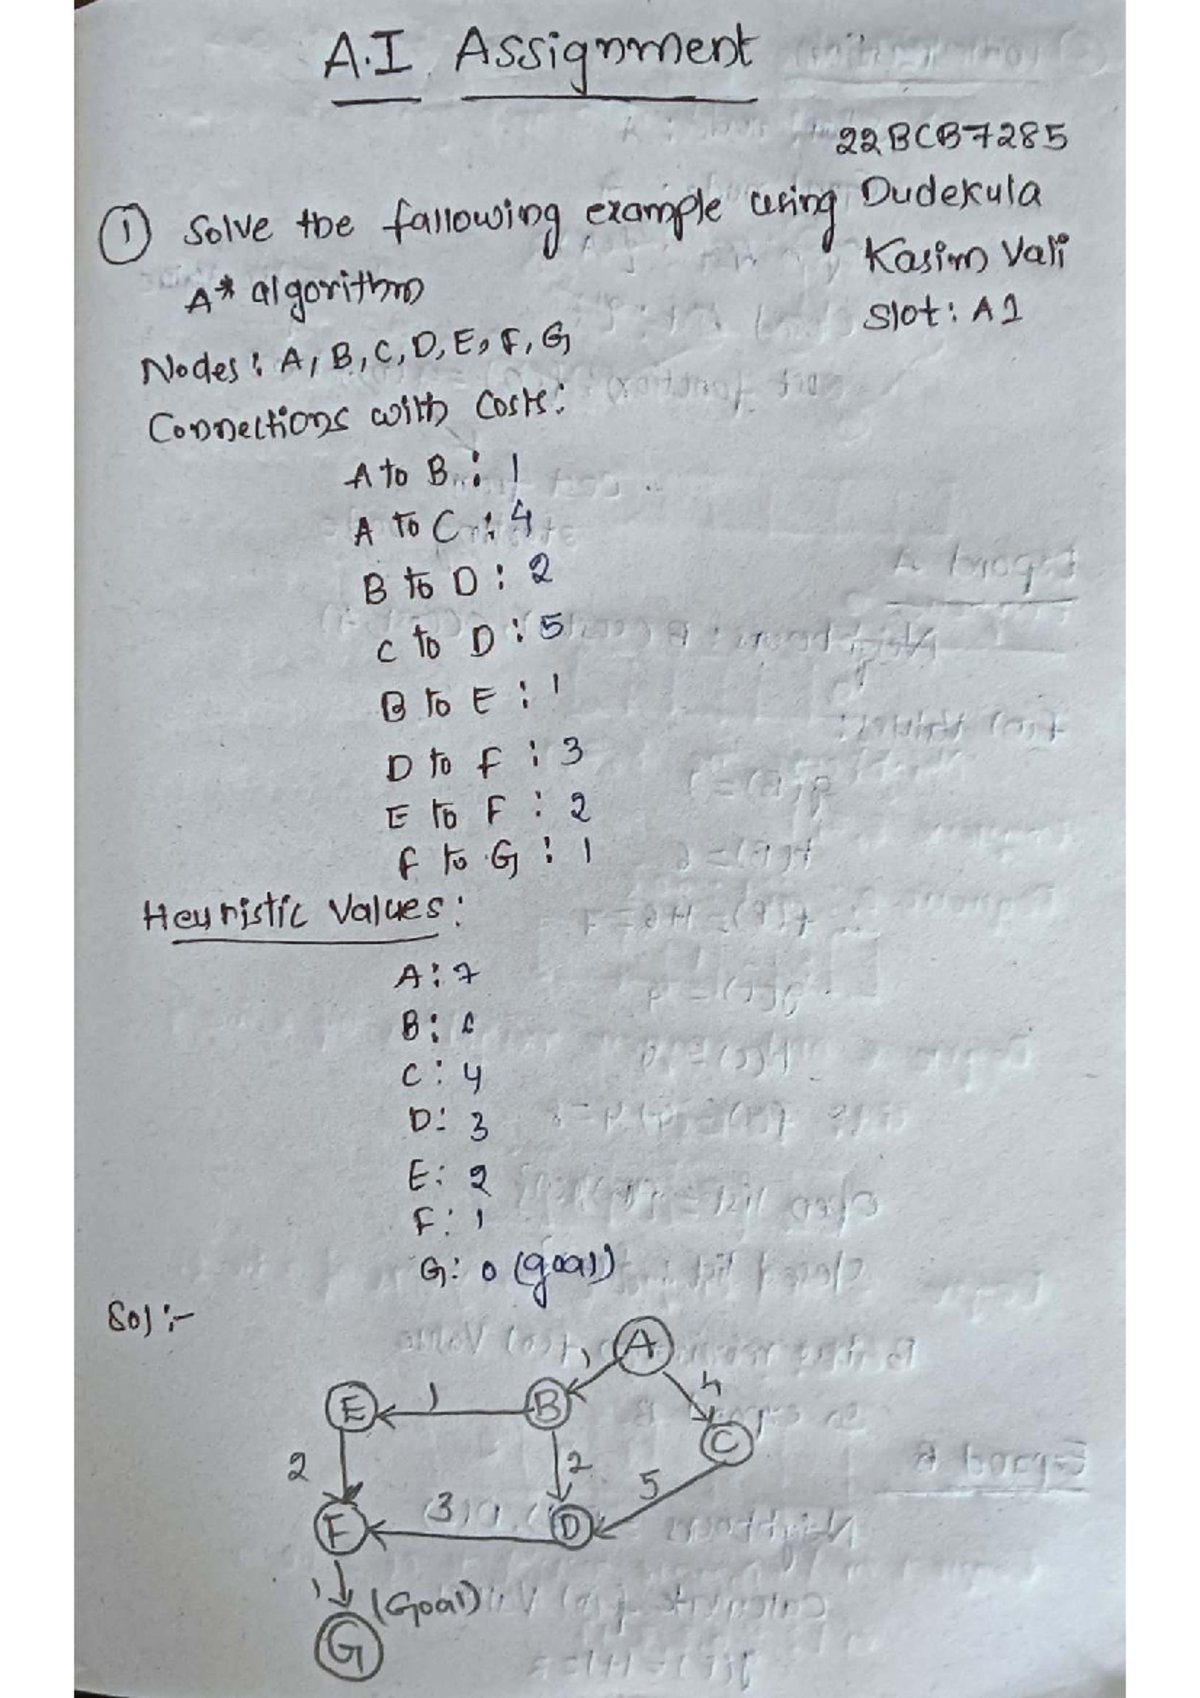 A.I Assignment
22BCB7285
Dudekula
Kasim Vali
Slot: A1
① Solve the fallowing example using
A* algorithm
Nodes: A, B, C, D, E, F, G
Connections with Costs:
A to B: 1
A to C: 4
B to D: 2
C to D: 5
B to E: 1
D to F: 3
E to F: 2
F to G: 1
Heuristic Values:
A: 7
B:
C: 4
D: 3
E: 2
F: 1
G: 0 (goal)
Sol:-
A
1
4
E
1
B
C
2
2
5
F
3
D
1
(Goal)
G